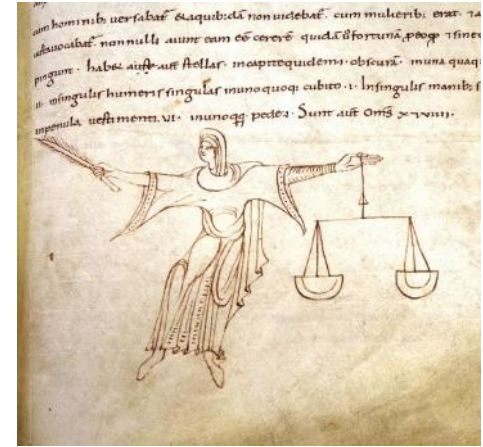 cum hominib; versabat᷒ & aquib;dā non videbat᷒. cum mulierib; erat.
vocabat᷒. non nulli aiunt eam eē cererē quidā fortunā, 
pingunt. habet aut᷒ stellas. incapite quidem .i. obscurā. inuna quaq
.ii. insingulis humeris singulas inunoquoq; cubito .i. Insingulis manib;
inpenula vestimenti .vi. inunoqq; pede .i. Sunt aut᷒ Om̄s